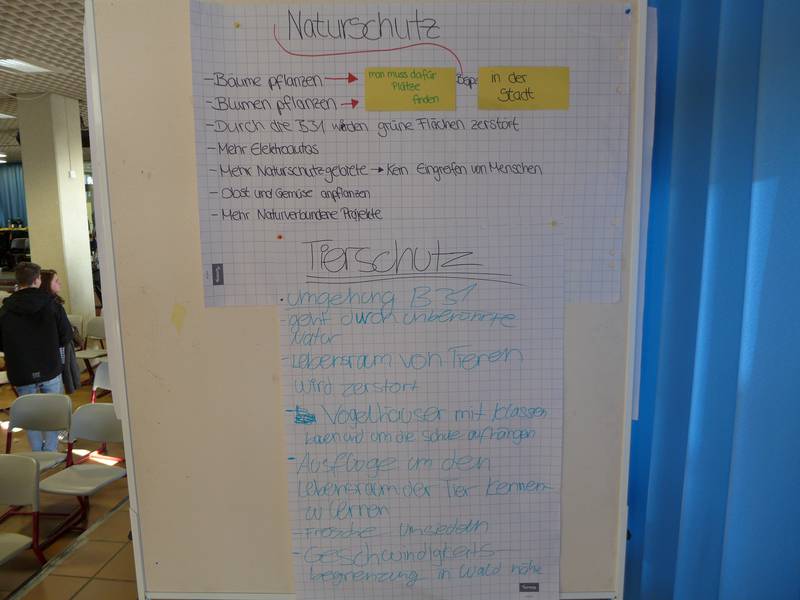 Naturschutz
- Bäume pflanzen →
- Blumen pflanzen →
man muss dafür
Plätze
finden
in der
Stadt
- Durch die B31 werden grüne Flächen zerstört
- Mehr Elektroautos
- Mehr Naturschutzgebiete → Kein Eingreifen von Menschen
- Obst und Gemüse anpflanzen
- Mehr Naturverbundene Projekte
Tierschutz
· Umgehung B31
- geht durch unberührte
Natur
- Lebensraum von Tieren
wird zerstört
- Vogelhäuser mit Klassen
bauen und um die Schule aufhängen
- Ausflüge um den
Lebensraum der Tier kennen
zu lernen
- Frösche umsiedeln
- Geschwindigkeits
begrenzung in Wald nähe